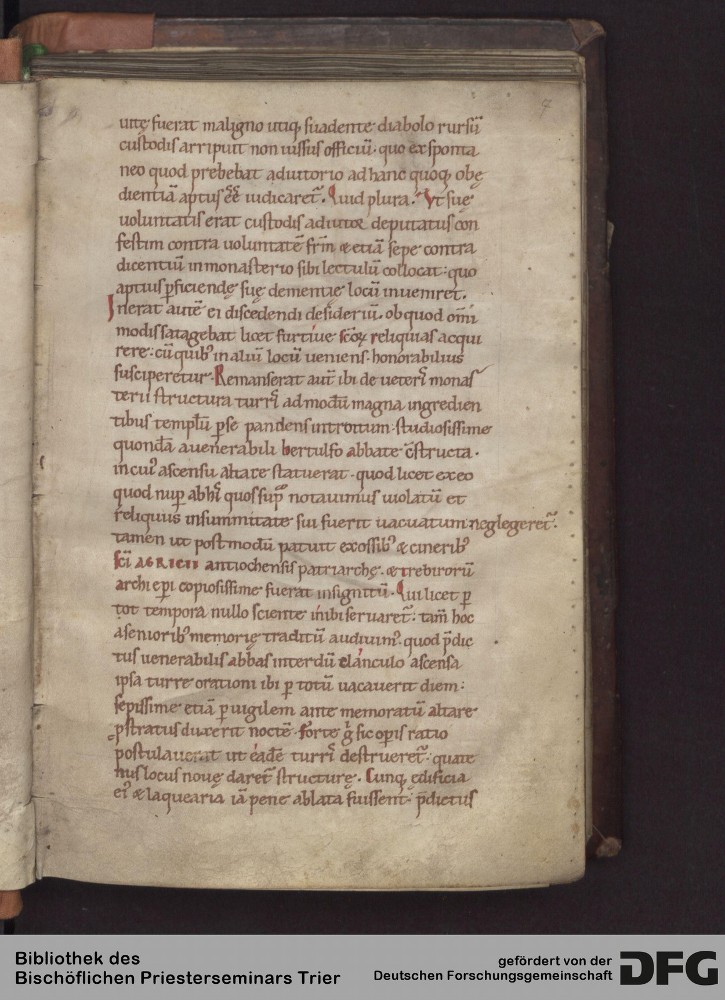 7
uitę fuerat maligno utiq; suadente diabolo rursū
custodis arripuit non iussus officiū. quo ex sponta
neo quod prebebat adiutorio ad hanc quoq; obę
dientiā aptus eē iudicaret̄. Quid plura. Vt suę
uoluntatis erat custodis adiutor deputatus con
festim contra uoluntatē frm̄ & etiā sepe contra
dicentiū in monasterio sibi lectulū collocat: quo
aptius ꝑficiendę suę dementię locū inueniret.
Inerat autē ei discedendi desideriū. ob quod om̄i
modis satagebat licet furtiue scōꝝ reliquias acqui
rere: cū quibꝰ in aliū locū ueniens. honorabilius
susciperetur. Remanserat aut̄ ibi de ueteri monas
terii structura turri ad modū magna ingredien
tibus templū ꝑ se pandens introitum. studiosissime
quondā a uenerabili bertulfo abbate c̄structa.
in cuiꝰ ascensu altare statuerat. quod licet ex eo
quod nuꝑ ab quos sup̄ notauimus uiolatū et
reliquiis in summitate sui fuerit uacuatum neglegeret̄.
tamen ut post modū patuit ex ossibꝰ & cineribꝰ
Sc̄i AGRICII antiochensis patriarchę. & trebirorū
archi ep̄i copiosissime fuerat insignitū. Qui licet ꝑ
tot tempora nullo sciente inibi seruaret̄. tam̄ hoc
a senioribꝰ memorię traditū audiuimꝰ. quod p̄dic
tus uenerabilis abbas interdū clanculo ascensa
ipsa turre orationi ibi ꝑ totū uacauerit diem:
sepissime etiā ꝑuigilem ante memoratū altare
ꝓstratus duxerit noctē. Forte ḡ sic oꝑis ratio
postulauerat ut eadē turri destrueret̄. quate
nus locus nouę daret̄ structurę. Cunq; ędificia
eiꝰ & laquearia iā pene ablata fuissent. p̄dictus
Bibliothek des
Bischöflichen Priesterseminars Trier
gefördert von der
Deutschen Forschungsgemeinschaft
DFG